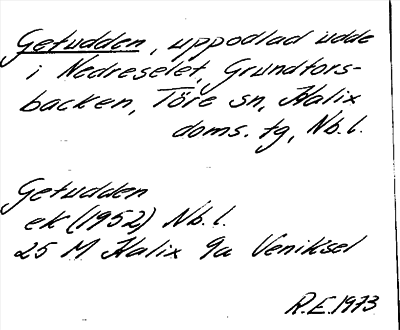 Getudden, uppodlad udde
i Nedreselet, Grundfors-
backen, Töre sn, Kalix
doms. tg, Nb. l.
Getudden
ek (1952) Nb. l.
25 M Kalix 9a Veniksel
R.E. 1973